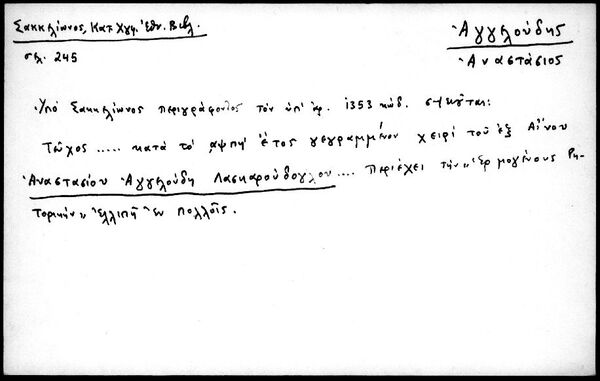 Σακκελίωνος, Κατ. Χγφ. Ἐθν. Βιβλ.
σελ. 245
Ἀγγελούδης
Ἀναστάσιος
Ὑπὸ Σακκελίωνος περιγράφοντος τὸν ὑπ' ἀρ. 1353 κώδ.
Τεῦχος ..... κατὰ τὸ αψπη' ἔτος γεγραμμένον χειρὶ τοῦ ἐξ Αἴνου
Ἀναστασίου Ἀγγελούδη Λασκαρούδογλου .... περιέχει τὴν „Ἑρμογένους Ρη-
τορικὴν„ ἐλλιπῆ ἐν πολλοῖς.